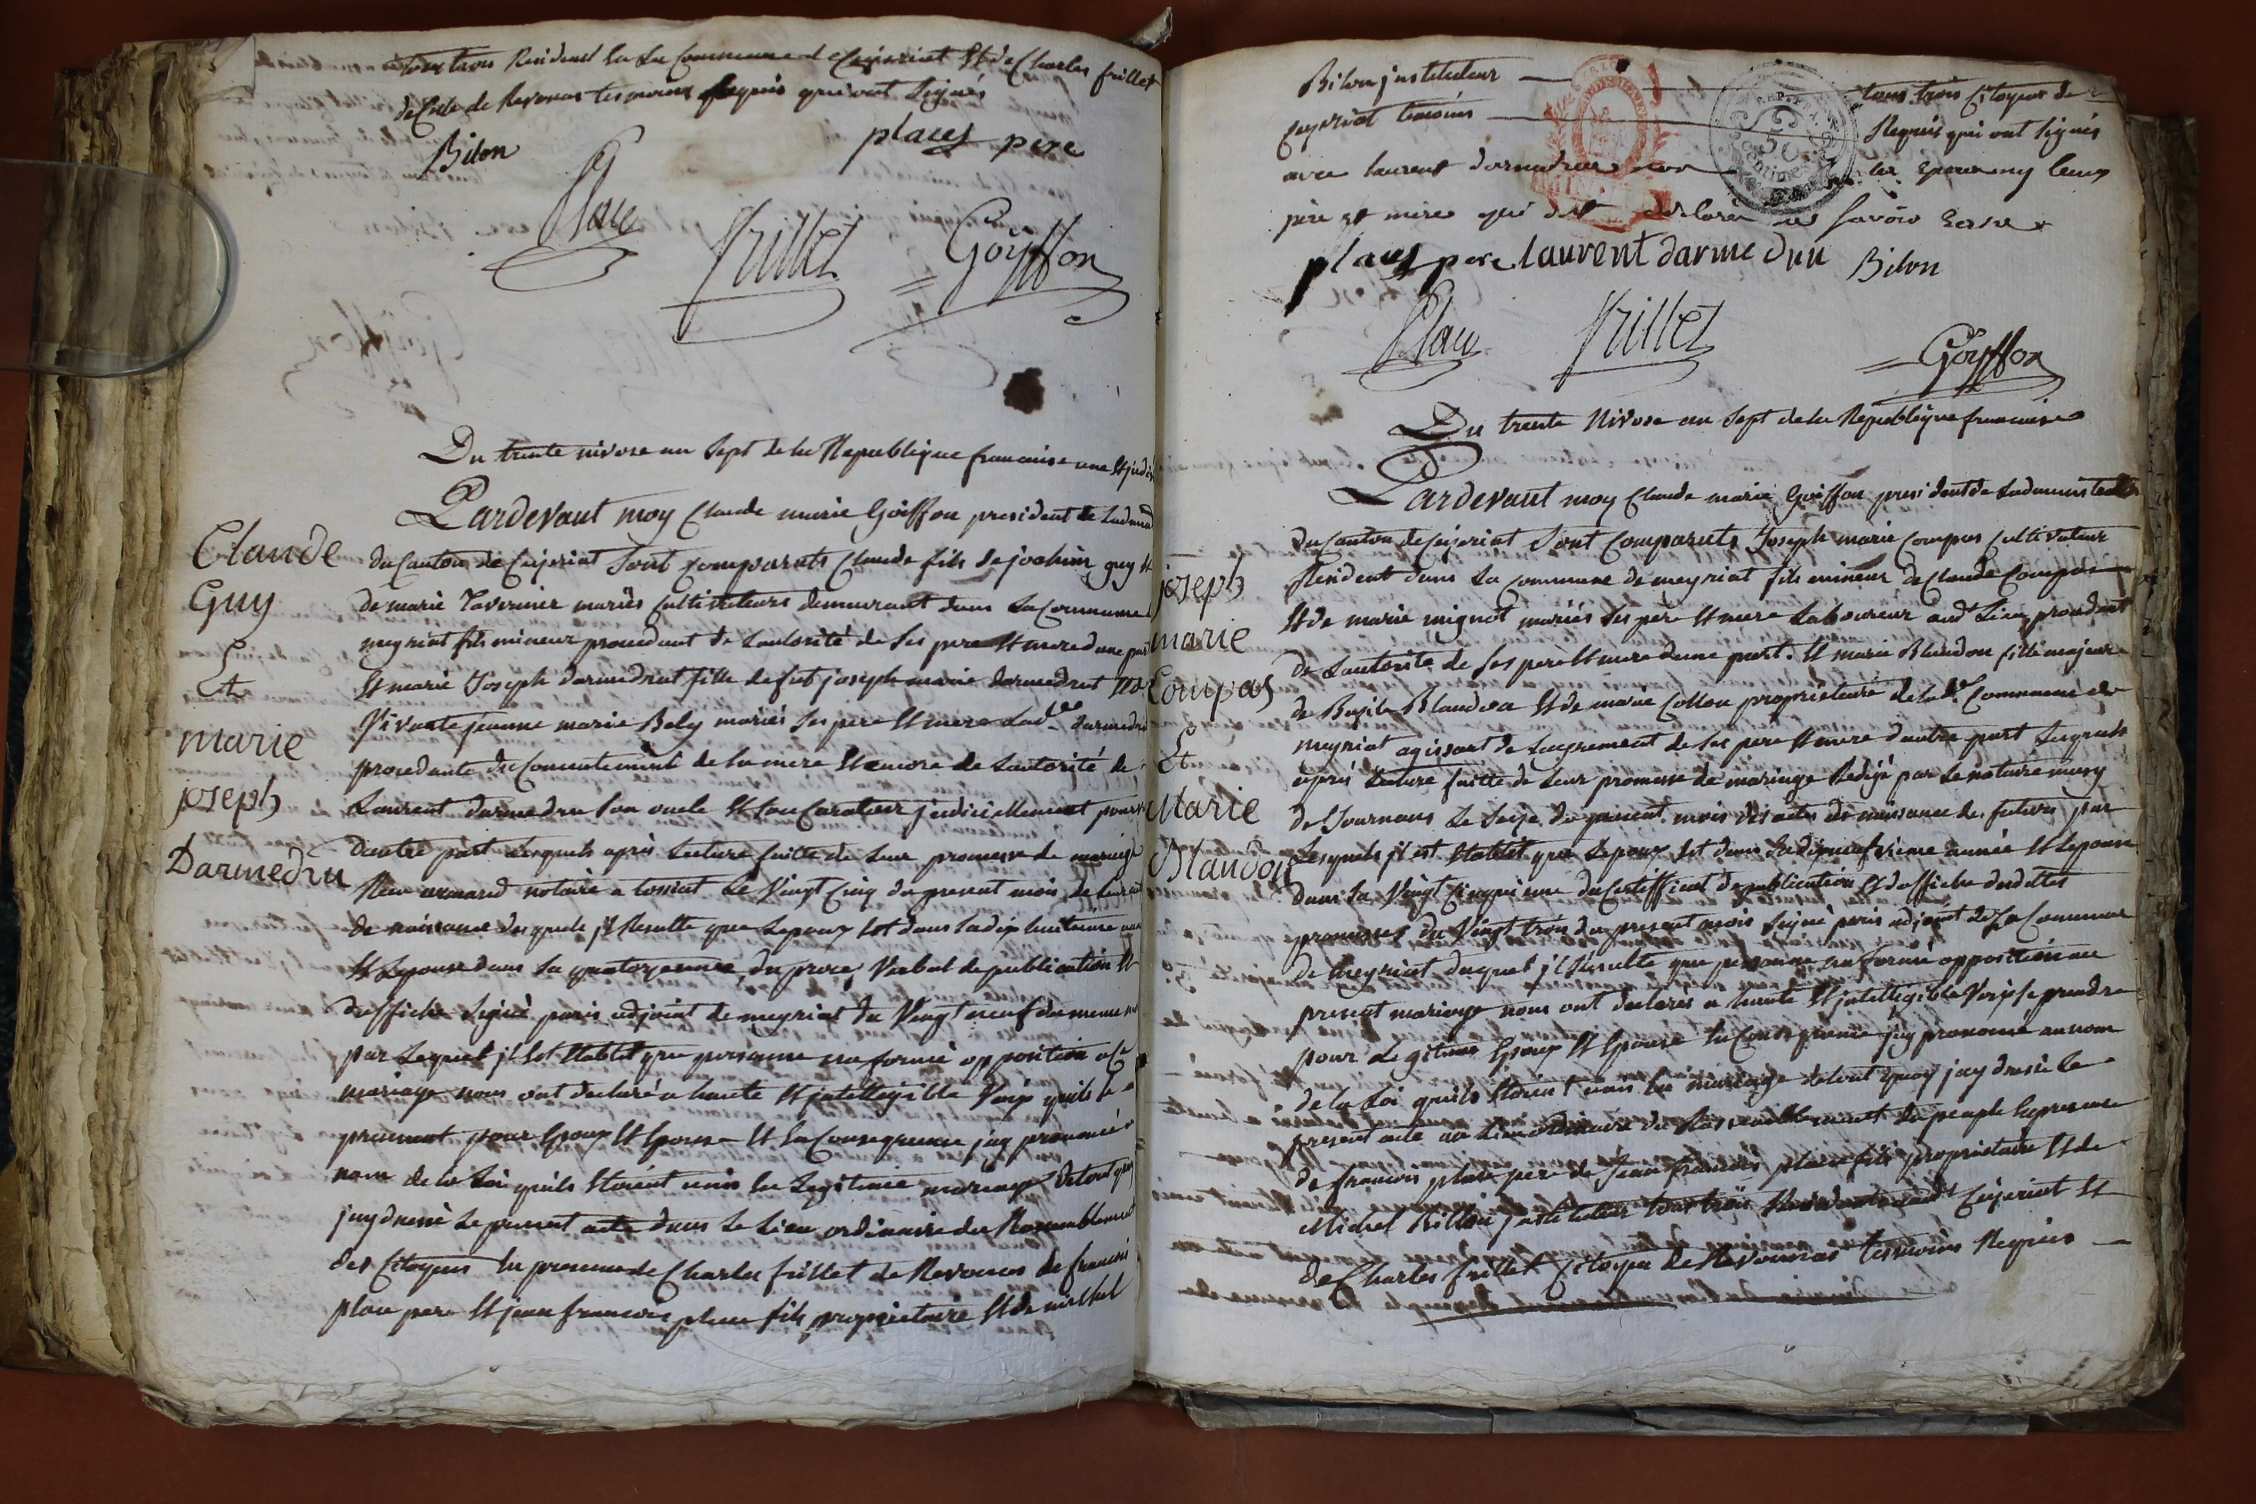 tous trois Residant en la Commune de Ceyzeriat Et de Charles frillet
de Celle de Revonas tesmoins Requis qui ont Signés
Bilon
places pere
Place
frillet
Goiffon
Du trente nivose an Sept de la Republique francaise une Et
Pardevant moy Claude marie Goiffon president de
du Canton de Ceyzeriat Sont Comparuts Claude fils de joachim guy Et
de marie Tavernier mariés Cultivateurs demeurant dans La Commune
meyriat fils mineur procedant de Lautorité de Ses pere Et mere dune part
Et marie Joseph darmedrut fille de fut joseph marie darmedrut Et de
Vivante jeanne marie Bely mariés Ses pere Et mere Lad.
procedante du Consentement de la mere Et encore de Lautorité de
Laurent darmedru Son oncle Et Son Curateur judiciellement
dautre part Lesquels après Lecture faitte de Leur promesse de mariage
notaire a tossiat Le Vingt Cinq du present mois de
de naissance desquels jl Resulte que Lepoux Est dans Sa dix huitieme
Et Lepouse dans Sa quatorzieme du proces Verbal de publication Et
daffiche Signé paris adjoint de meyriat du Vingt neuf du meme
par Lequel jl Est Etablit que personne na formé opposition a Ce
mariage nous ont declaré a haute Et jntelligible Voix quils Se
prennent pour Epoux Et Epouse Et En Consequence jay prononcé
nom de la Loi quils Etoient unis En Legitime mariage de tout quoy
jay dressé Le present acte dans Le Lieu ordinaire du Rassemblement
des Citoyens En presence de Charles frillet de Revonas de francois
place pere Et jean francois place fils proprietaire Et de michel
Claude
Guy
Et
marie
joseph
Darmedru
Bilon jnstituteur tous trois Citoyens de
Ceyzeriat temoins Requis qui ont Signés
avec laurent darmedru
père et mere qui ont declaré ne Savoir
places pere laurent darmedru Bilon
Place
frillet
Goiffon
Du trente Nivose an Sept de la Republique francaise
Pardevant moy Claude marie Goiffon president de Ladministration
du Canton de Ceyzeriat Sont Comparuts Joseph marie Compas Cultivateur
Resident dans La Commune de meyriat fils mineur de Claude Compas
Et de marie mignot mariés Ses père Et mere Laboureur aud. Lieu procedant
de Lautorité de Ses père Et mere dune part. Et marie Blandon fille majeure
de Bazile Blandon Et de marie Collon proprietaire de Lad. Commune de
meyriat agissant de Lagrement de Ses pere Et mere dautre part Lesquels
après Lecture faitte de Leur promesse de mariage Redigé par Le notaire
de Journans Le Seize du present mois des actes de naissance des futurs par
Lesquels jl est Etablit que Lepoux Est dans Sa dixneufvieme année Et Lepouse
dans Sa Vingt Cinquieme du Certifficat de publication Et daffiche desdittes
promesses du Vingt trois du present mois Signé paris adjoint de La Commune
de meyriat duquel jl Resulte que personne na formé opposition au
present mariage nous ont declarés a haute Et jntelligible Voix Se prendre
pour Legitimes Epoux Et Epouse En Consequence jay prononcé au nom
de la Loi quils Etoient unis En mariage de tout quoy jay dressé Le
present acte au Lieu ordinaire du Rassemblement du peuple En presence
de francois place pere de Jean francois place fils proprietaire Et de
Michel Billon jnstituteur tous trois Residants aud. Ceyzeriat Et
de Charles frillet Citoyen de Revonas tesmoins Requis
joseph
marie
Compas
Et
Marie
Blandon